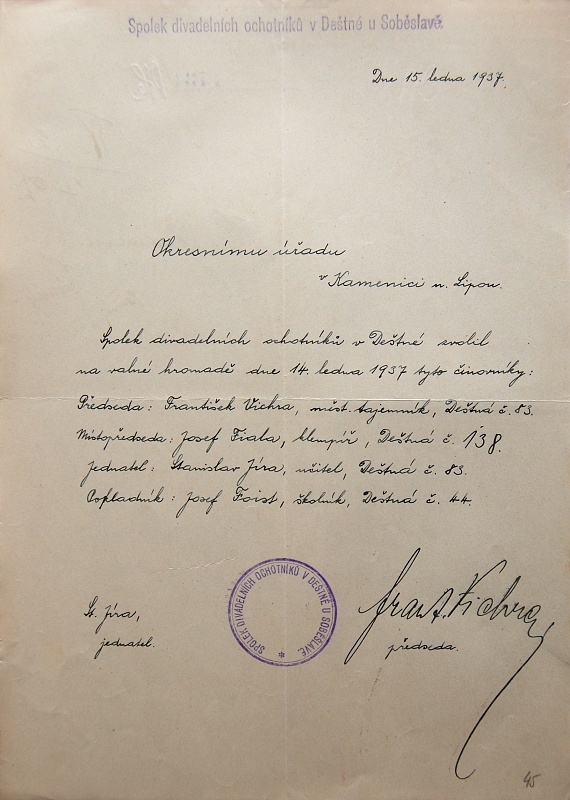 Spolek divadelních ochotníků v Deštné u Soběslavě.
Dne 15. ledna 1937.
Okresnímu úřadu
v Kamenici n. Lipou.
Spolek divadelních ochotníků v Deštné zvolil
na valné hromadě dne 14. ledna 1937 tyto činovníky:
Předseda: František Vichra, měst. tajemník, Deštná č. 83.
Místopředseda: Josef Fiala, klempíř, Deštná č. 138.
Jednatel: Stanislav Jíra, učitel, Deštná č. 83.
Pokladník: Josef Foist, školník, Deštná č. 44.
SPOLEK DIVADELNÍCH OCHOTNÍKŮ V DEŠTNÉ U SOBĚSLAVĚ. *
St. Jíra,
jednatel.
Frant. Vichra
předseda.
45